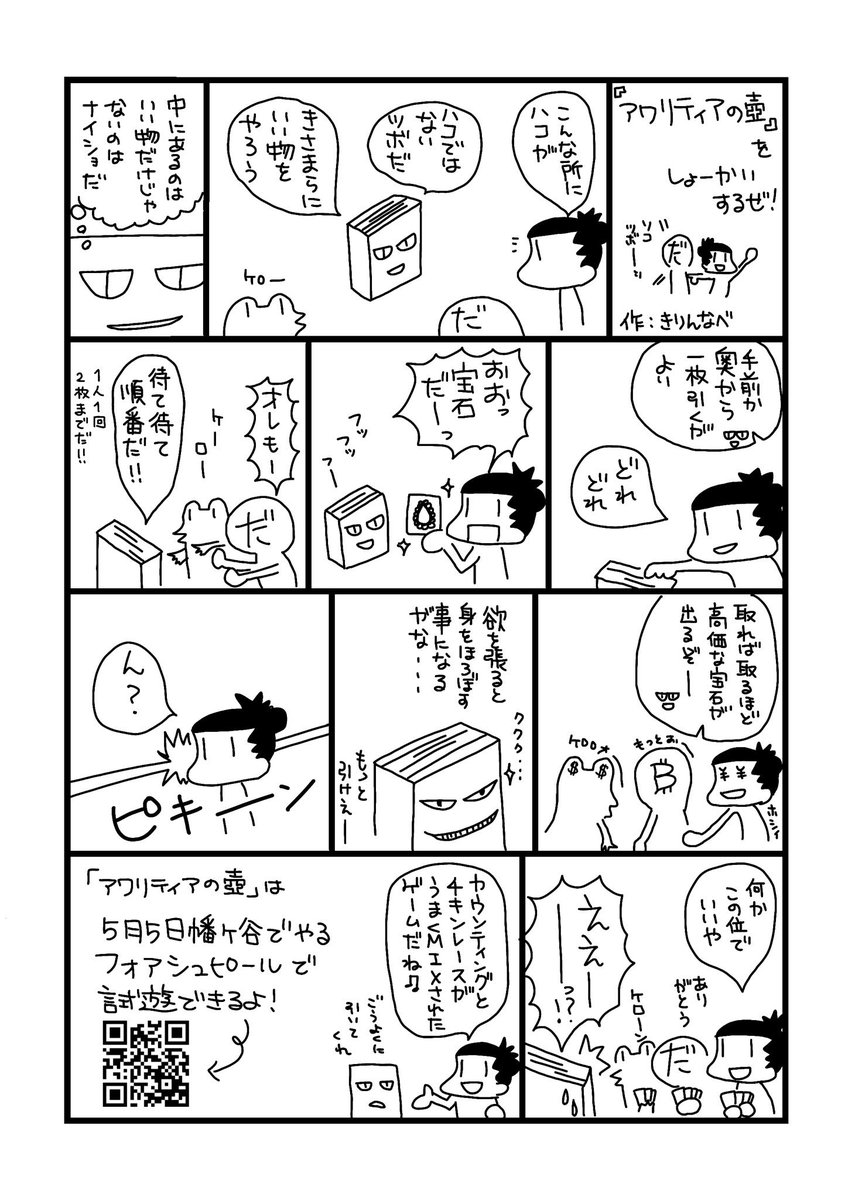 『アワリティアの壺』
を
しょーかい
するぜ!
ソコ
ツボーッ
だ
作:きりんなべ
こんな所に
ハコが
ハコでは
ない
ツボだ
きさまらに
いい物を
やろう
ケロー
だ
中にあるのは
いい物だけじゃ
ないのは
ナイショだ
手前か
奥から
一枚引くが
よい
どれ
どれ
おおっ
宝石
だーっ
フッ
フッ
フー
オレもー
ケー
ロー
だ
待て待て
順番だ!!
1人1回
2枚までだ!!
取れば取るほど
高価な宝石が
出るぞー
¥¥
ホシイ
もっとぉー
B
ケロロ
$$
欲を張ると
身をほろぼす
事になる
がな・・・
ククク・・・
もっと
引けえー
ん?
ピキーン
何か
この位で
いいや
あり
がとう
だ
ケローン
ええー
ーっ?!
カウンティングと
チキンレースが
うまくMIXされた
ゲームだね♫
ごうよくに
引いて
くれ
「アワリティアの壺」は
5月5日幡ヶ谷でやる
フォアシュピールで
試遊できるよ!